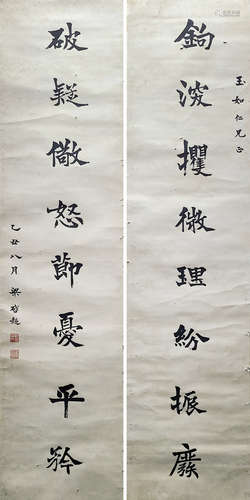 玉如仁兄正
鉤深攫微理紛振廢
破疑儆怒節憂平矜
乙丑八月 梁啟超